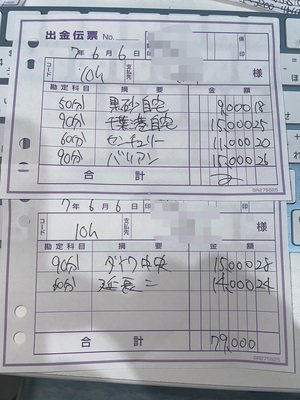 出金伝票 No.
7年6月6日
コード 104 支払先 様
勘定科目 摘要 金額
50分 黒砂自宅 9,000 18
90分 千葉港自宅 15,000 25
60分 センチュリー 11,000 20
90分 バリアン 15,000 26
合計 2
7年6月6日
コード 104 支払先 様
勘定科目 摘要 金額
90分 ダイワ中央 15,000 28
60分 延長 14,000 24
合計 79,000